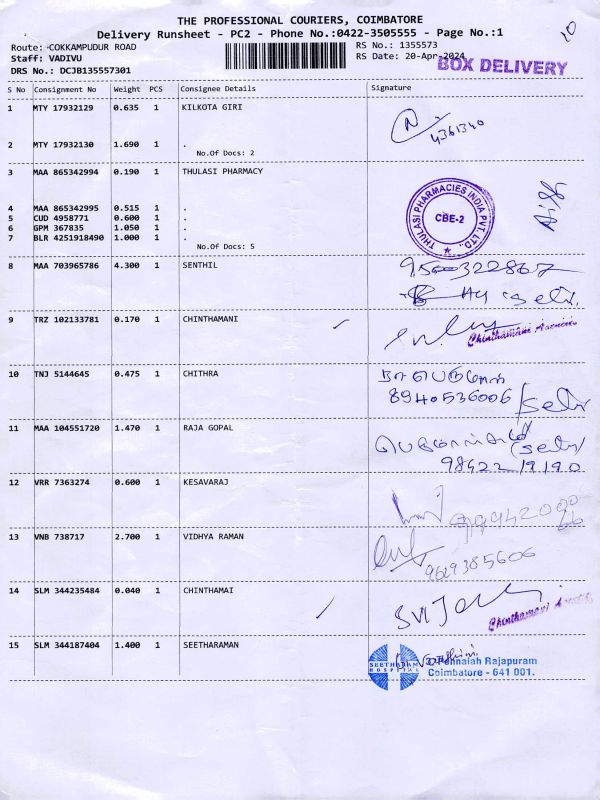 THE PROFESSIONAL COURIERS, COIMBATORE
Delivery Runsheet - PC2 - Phone No.:0422-3505555 - Page No.:1
10
Route: COKKAMPUDUR ROAD
RS No.: 1355573
Staff: VADIVU
RS Date: 20-Apr-2024
BOX DELIVERY
DRS No.: DCJB135557301
S No Consignment No Weight PCS Consignee Details Signature
1 MTY 17932129 0.635 1 KILKOTA GIRI
4361340
2 MTY 17932130 1.690 1 .
No.Of Docs: 2
3 MAA 865342994 0.190 1 THULASI PHARMACY
THULASI PHARMACIES INDIA PVT. LTD.,
CBE-2
4 MAA 865342995 0.515 1 .
5 CUD 4958771 0.600 1 .
6 GPM 367835 1.050 1 .
7 BLR 4251918490 1.000 1 .
No.Of Docs: 5
8 MAA 703965786 4.300 1 SENTHIL
9 TRZ 102133781 0.170 1 CHINTHAMANI
Chinthamani Agencies
10 TNJ 5144645 0.475 1 CHITHRA
8940536006
11 MAA 104551720 1.470 1 RAJA GOPAL
98422 19190
12 VRR 7363274 0.600 1 KESAVARAJ
13 VNB 738717 2.700 1 VIDHYA RAMAN
9629385606
14 SLM 344235484 0.040 1 CHINTHAMAI
Chinthamani
15 SLM 344187404 1.400 1 SEETHARAMAN
HOSPITAL
Rajapuram
Coimbatore - 641 001.